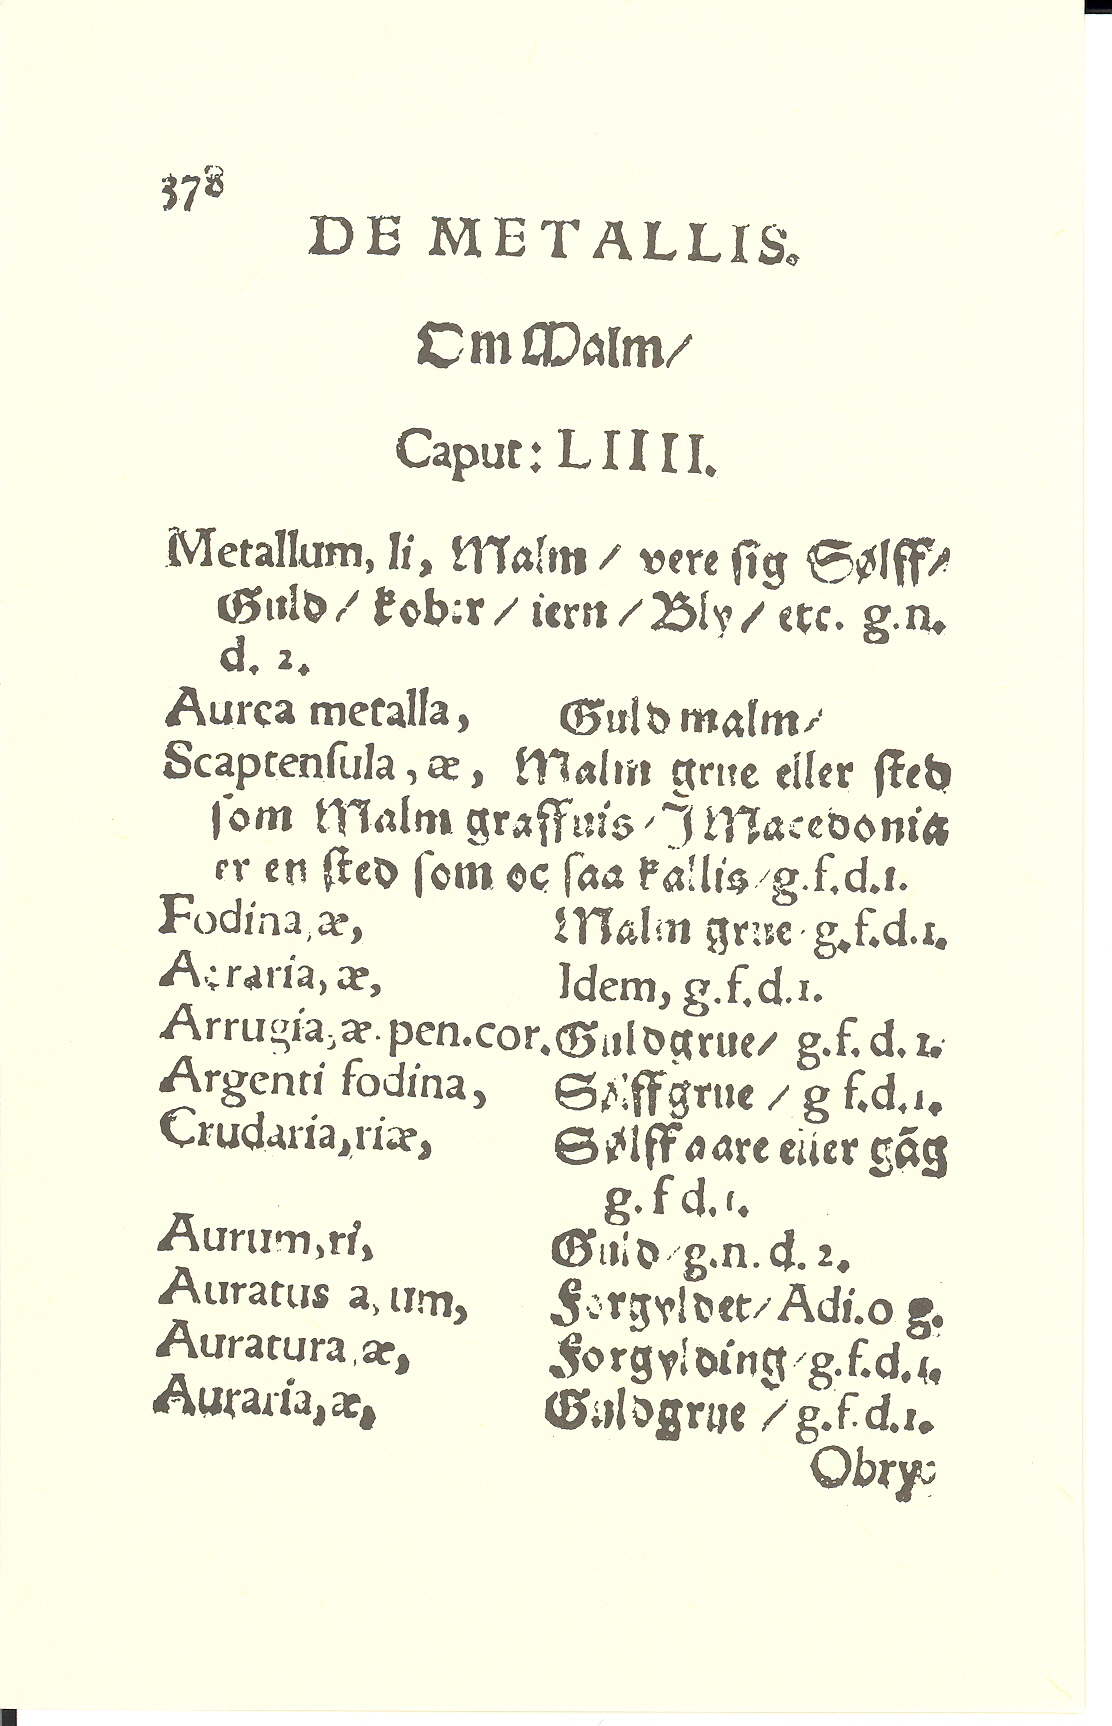 378
DE METALLIS.
Om Malm/
Caput: LIIII.
Metallum, li, Malm / vere sig Sølff/
Guld / kober / iern / Bly / etc. g.n.
d. 2.
Aurea metalla, Guld malm/
Scaptensula, æ, Malm grue eller sted
som Malm graffuis / J Macedonia
er en sted som oc saa kallis / g.f.d.1.
Fodina, æ, Malm grue / g.f.d.1.
Aeraria, æ, Idem, g.f.d.1.
Arrugia, æ. pen.cor. Guldgrue/ g.f.d.1.
Argenti fodina, Sølffgrue / g f.d.1.
Crudaria, riæ, Sølff aare eller gãg
g. f d. 1.
Aurum, ri, Guld / g.n. d. 2.
Auratus a, um, Forgyldet / Adi.o g.
Auratura, æ, Forgylding / g.f.d.1.
Auraria, æ, Guldgrue / g.f.d.1.
Obry: